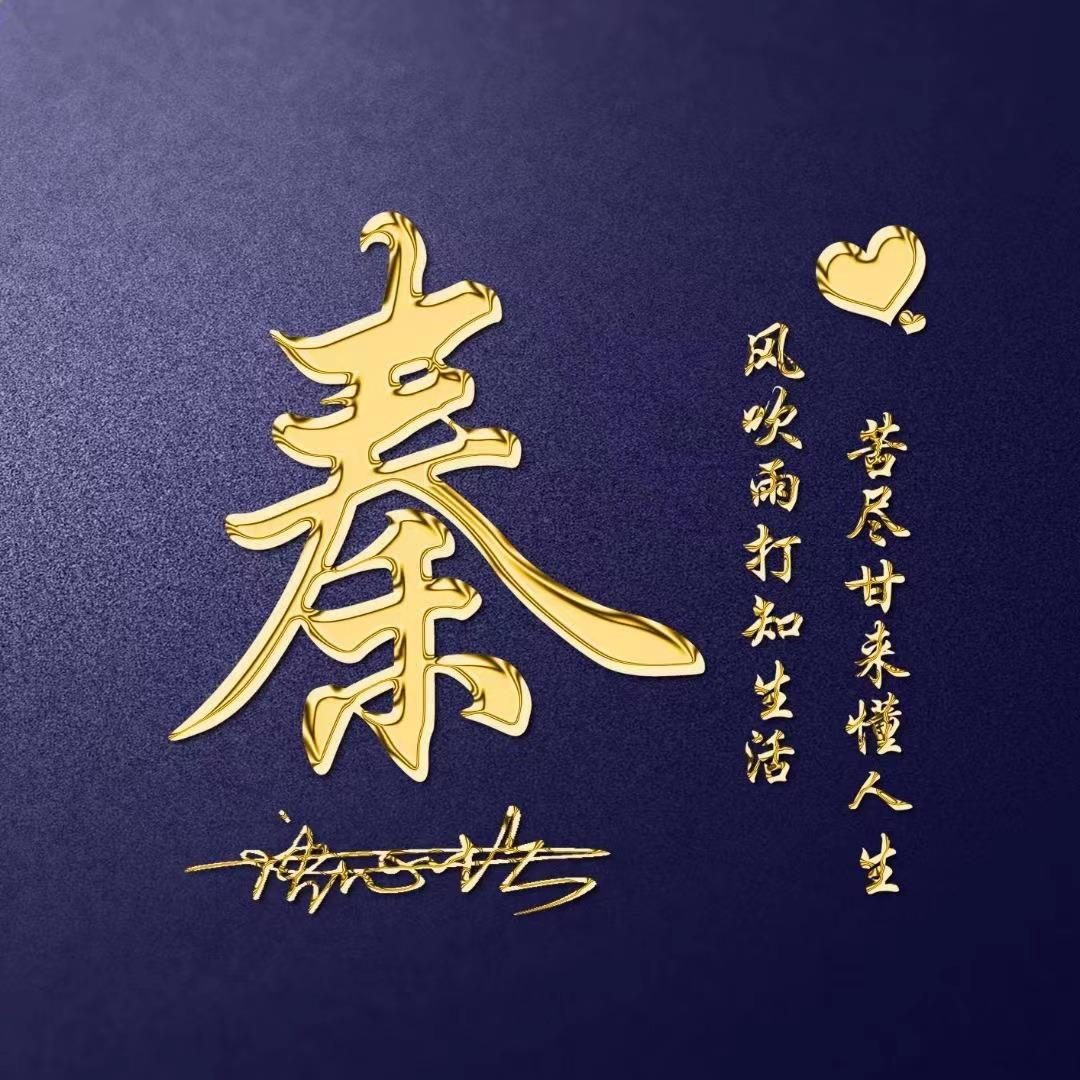 秦
苦尽甘来懂人生
风吹雨打知生活